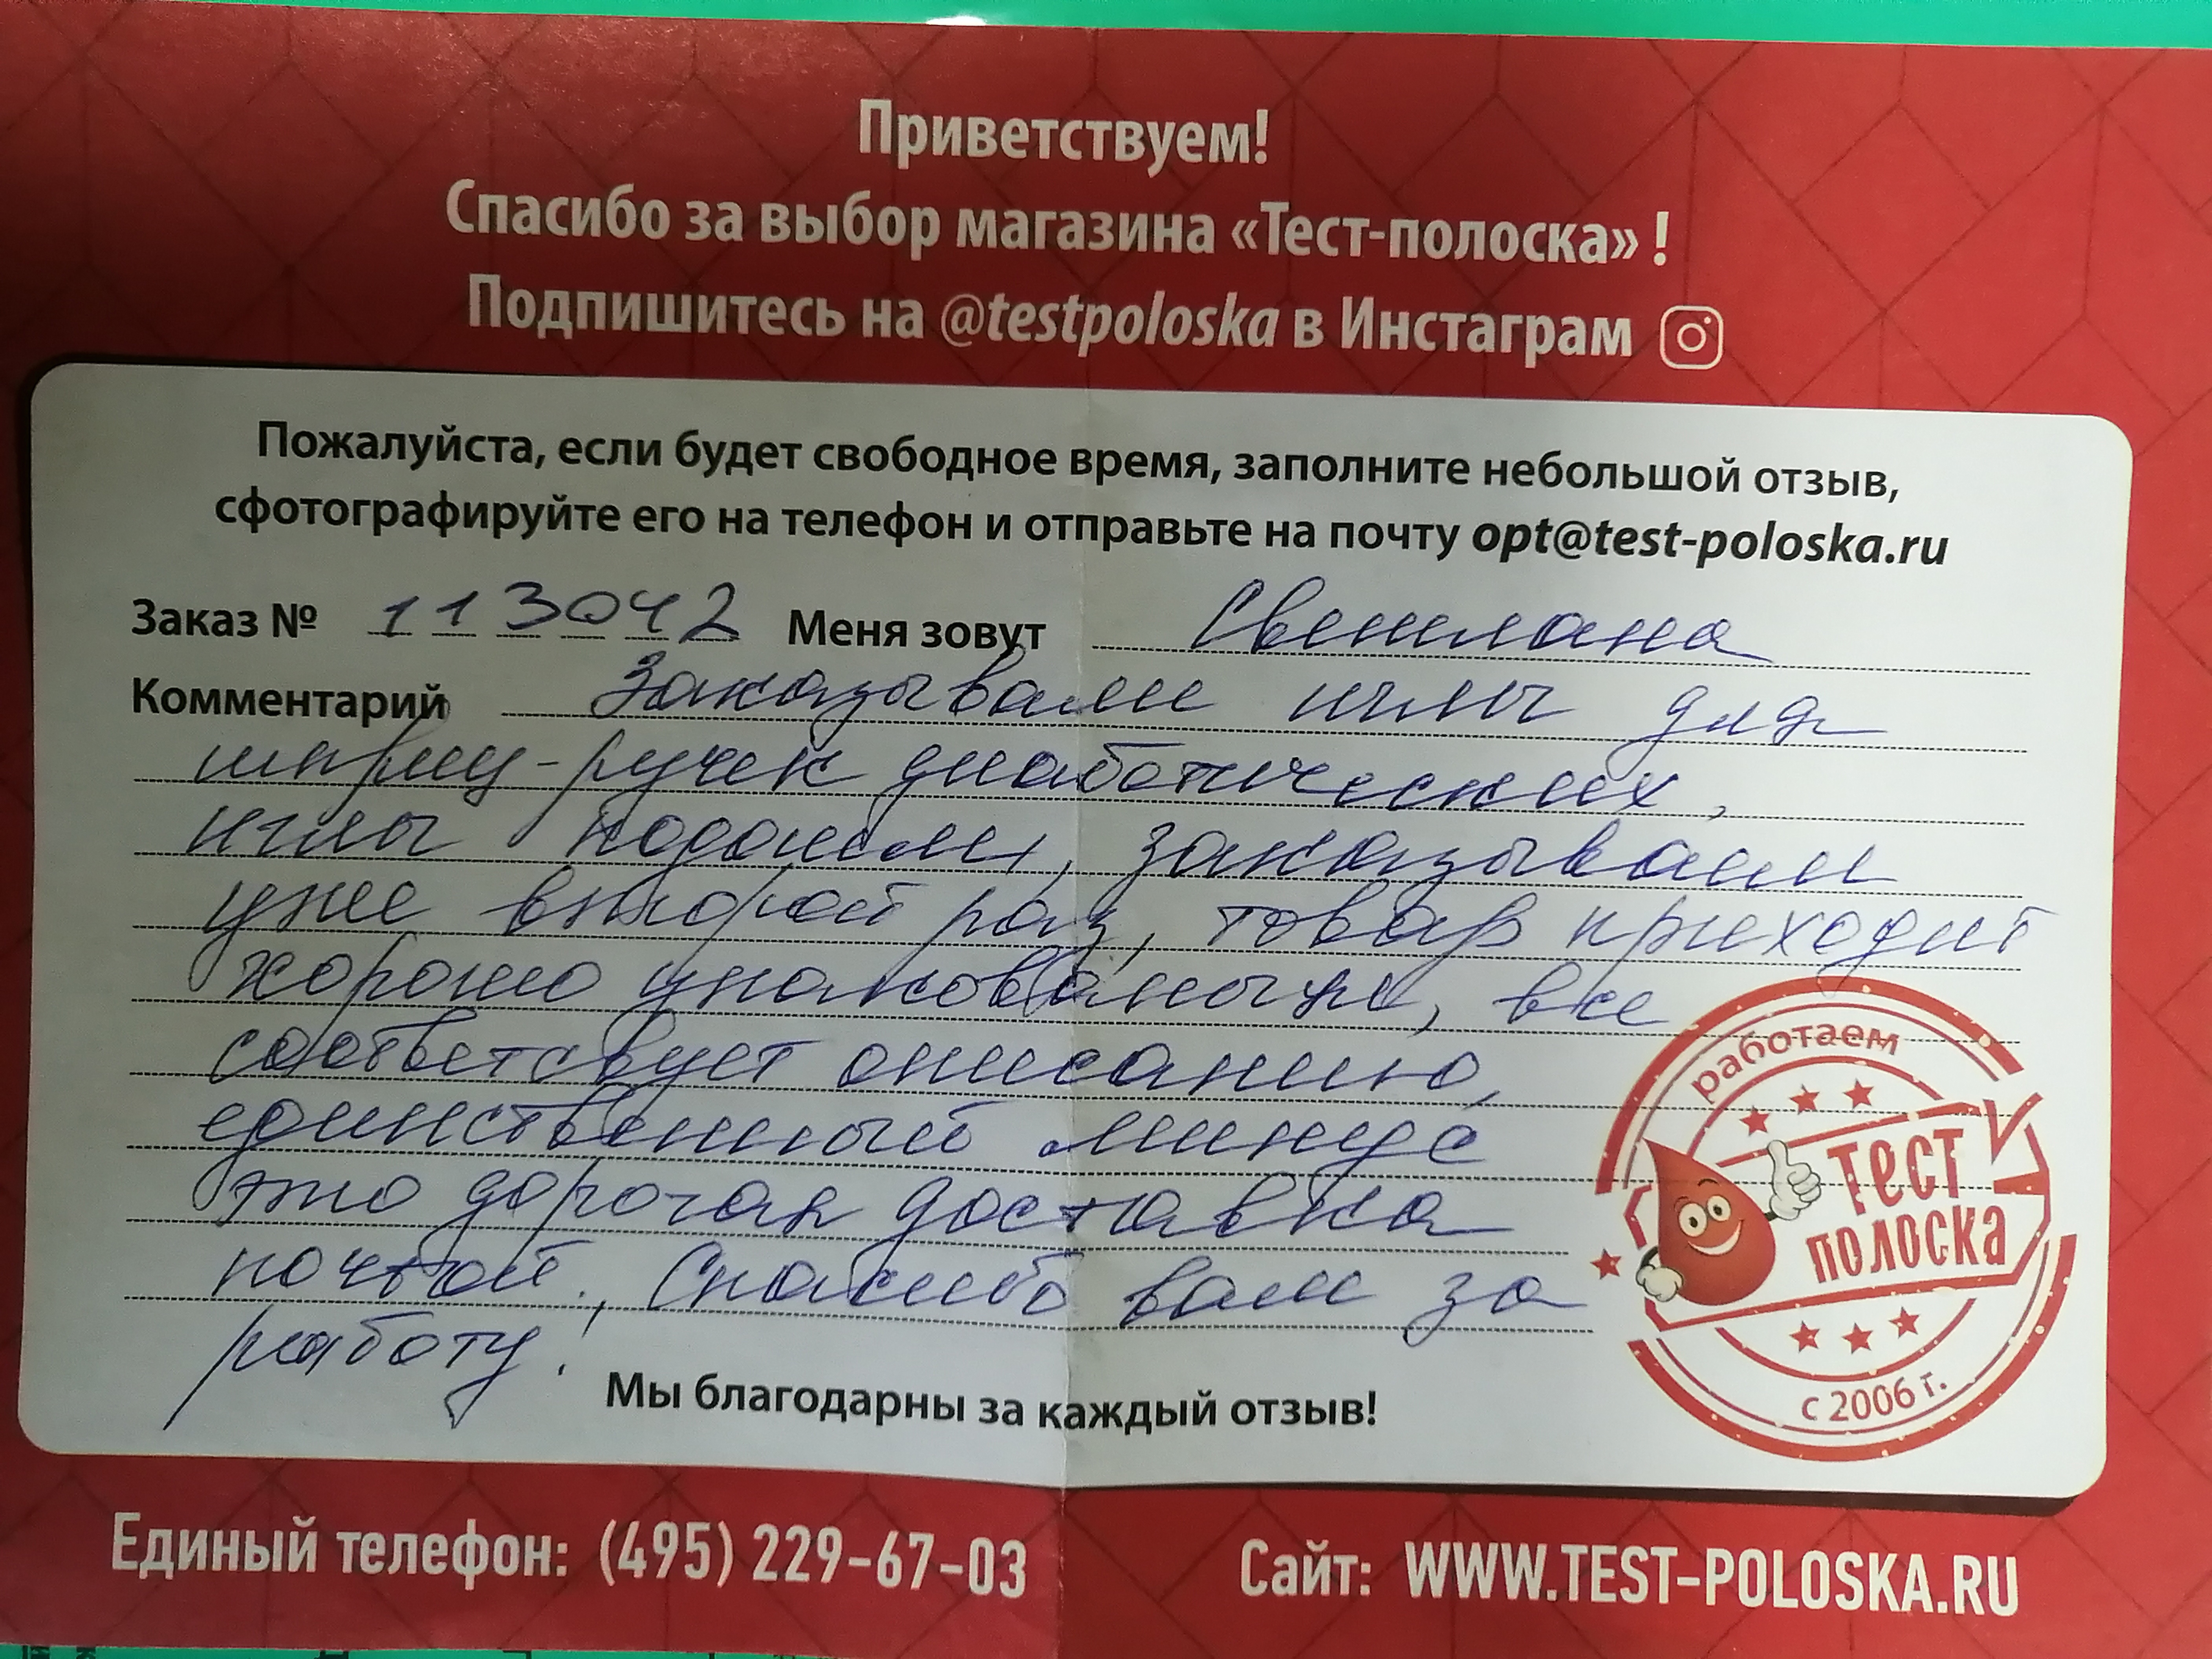 Приветствуем!
Спасибо за выбор магазина «Тест-полоска» !
Подпишитесь на @testpoloska в Инстаграм
Пожалуйста, если будет свободное время, заполните небольшой отзыв,
сфотографируйте его на телефон и отправьте на почту opt@test-poloska.ru
Заказ № 113042 Меня зовут Светлана
Комментарий Заказывали иглы для
шприц-ручек диабетических,
иглы подошли, заказывали
уже второй раз, товар приходит
хорошо упакованным, все
соответсвует описанию,
единственный минус
это дорогая доставка
почтой., Спасибо вам за
работу.
Мы благодарны за каждый отзыв!
работаем
Тест
полоска
с 2006 г.
Единый телефон: (495) 229-67-03 Сайт: WWW.TEST-POLOSKA.RU